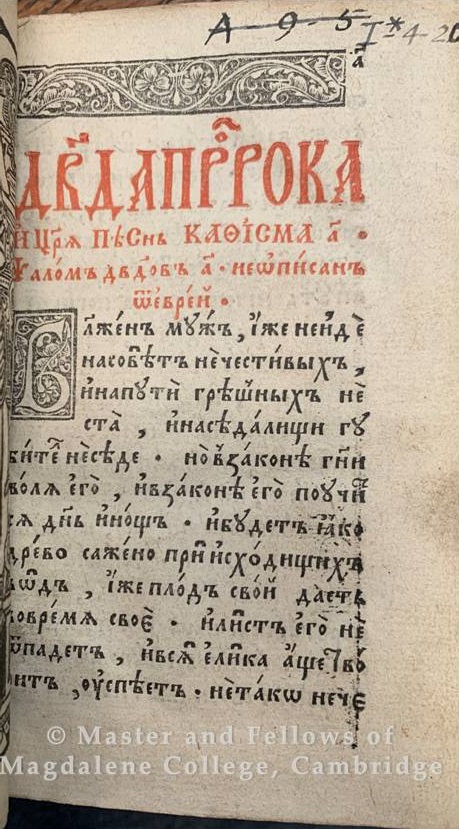 A 9 5 I* 4-20
а҃
Дв҃да прⷪ҇рока
и҆ цр҃ѧ пѣснь каѳісма а҃ ·
Ѱаломъ дв҃довъ а҃ · неѡ҆писанъ
ѿ є҆врей ·
Блаже́нъ му́жъ , и҆́же не и҆́де
на совѣ́тъ нечести́выхъ ,
и҆ на пути̂ грѣ́шныхъ не
ста̀ , и҆ на сѣда́лищи гу
би́те не сѣ́де · но̀ в̾ зако́нѣ гн҃и
во́лѧ є҆го̀ , и҆ в̾ зако́нѣ є҆го̀ поучи́т
сѧ дн҃ь и҆ но́щь · и҆ бу́детъ ꙗ҆́ко
дре́во саже́но при и҆схо́дищихъ
во́дъ , и҆́же пло́дъ сво́й да́стъ
во вре́мѧ своѐ · и҆ ли́стъ є҆го̀ не
ѿпаде́тъ , и҆ всѧ̂ є҆ли́ка а҆́ще тво
ри́тъ , ᲂу҆спѣ́етъ · не та́кѡ нече
© Master and Fellows of
Magdalene College, Cambridge